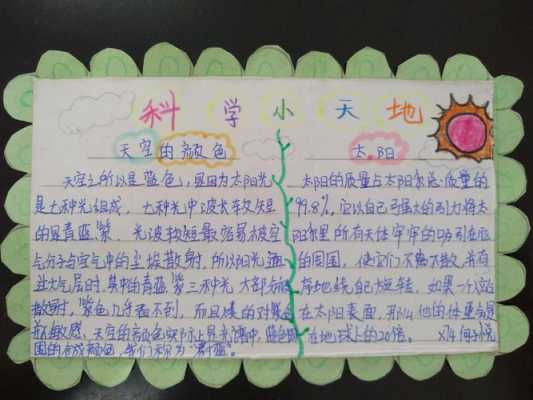 科学小天地
天空的颜色
天空之所以是蓝色,是因为太阳光
是七种光组成,七种光中波长较短
的是青蓝紫,光波较短最容易被空
气分子与空气中的尘埃散射,所以阳光通
过大气层时,其中的青蓝紫三种光大部分被
散射,紫色几乎看不到,而且人的对紫色
不敏感,天空的颜色实际上是光谱中蓝色
围的合成颜色,我们称为"蔚蓝"。
太阳
太阳的质量占太阳系总质量的
99.8%,它以自己强大的引力将太
阳系里所有天体牢牢的吸引在它
的周围,使它们不离不散,井井有
序地绕自己旋转,如果一个人站
在太阳表面,那么他的体重会是
在地球上的20倍。